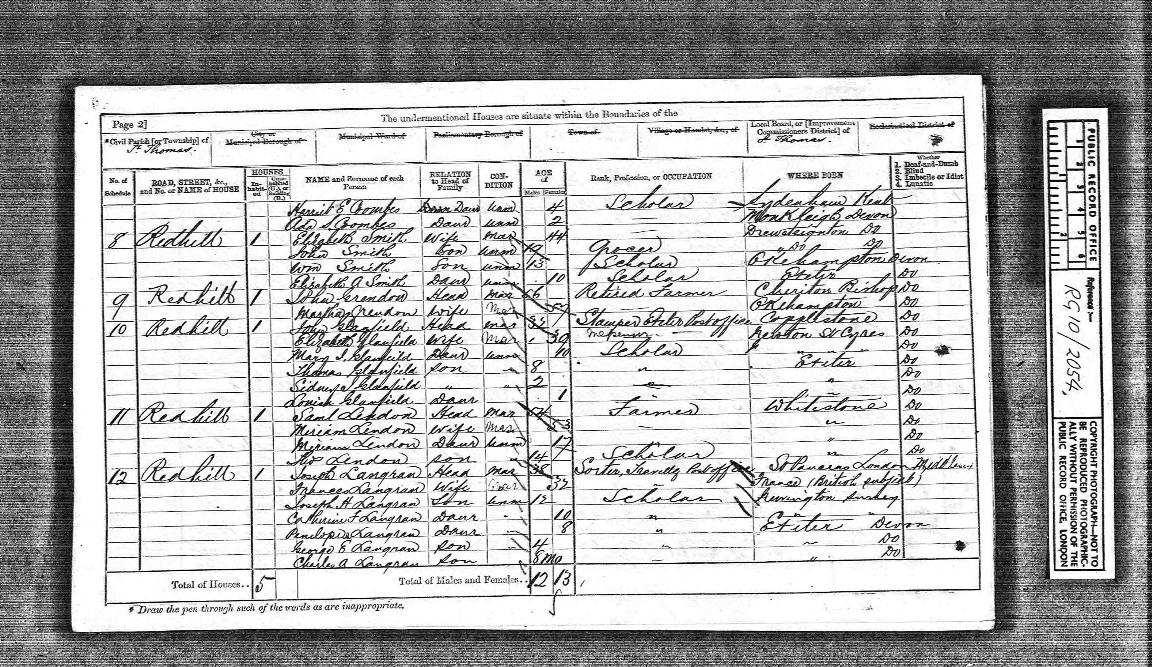 Page 2]
The undermentioned Houses are situate within the Boundaries of the
*Civil Parish [or Township] of
City or Municipal Borough of
Municipal Ward of
Parliamentary Borough of
Town of
Village or Hamlet, &c., of
Local Board, or [Improvement Commissioners District] of
Ecclesiastical District of
St. Thomas
St. Thomas
No. of Schedule
ROAD, STREET, &c., and No. or NAME of HOUSE
HOUSES
Inhabited
Uninhabited (U.), or Building (B.)
NAME and Surname of each Person
RELATION to Head of Family
CONDITION
AGE of
Males
Females
Rank, Profession, or OCCUPATION
WHERE BORN
Whether
1. Deaf-and-Dumb
2. Blind
3. Imbecile or Idiot
4. Lunatic
Harriet E Coombes Daur unm 4 Scholar Sydenham Kent
Ada S Coombes Daur unm 2 Monkleigh Devon
8 Redhill 1 Elizabeth Smith Wife Mar 44 Drewsteignton Do
John Smith Son unm 19 Grocer " Do Do
Wm Smith Son unm 15 Scholar Okehampton Devon
Elizabeth A Smith Daur unm 10 Scholar Exeter Do
9 Redhill 1 John Grendon Head Mar 66 Retired Farmer Cheriton Bishop Do
Martha Grendon Wife Mar Okehampton Do
10 Redhill 1 John Glanfield Head Mar Stamper Exeter Post office Copplestone Do
Elizabeth Glanfield Wife Mar 39 Newton St Cyres Do
Mary J. Glanfield Daur unm 10 Scholar " " Do
Thomas Glanfield Son " 8 " Exeter Do
Sidney J Glanfield " " 2 " " Do
Louisa Glanfield Daur 1 Do
11 Redhill 1 Saml Lendon Head Mar 54 Farmer Whitestone Do
Miriam Lendon Wife Mar 53 " Do
Miriam Lendon Daur unm 17 " Do
Thos Lendon Son " 14 Scholar " Do
12 Redhill 1 Joseph Langran Head Mar 38 Sorter Travellg Post office St Pancras London Middlesex
Frances Langran Wife Mar 37 France (British subject)
Joseph H Langran Son unm 12 Scholar Kennington Surrey
Catherine F Langran Daur " 10 " " "
Penelope Langran Daur " 8 " Exeter Devon
George E Langran Son " 4 " " Do
Charles A Langran Son 8 mo " Do
Total of Houses.. 5
Total of Males and Females.. 12 13
* Draw the pen through such of the words as are inappropriate.
PUBLIC RECORD OFFICE
1 2 3 4 5 6
Reference:—
RG 10/2054
COPYRIGHT PHOTOGRAPH—NOT TO BE REPRODUCED PHOTOGRAPHICALLY WITHOUT PERMISSION OF THE PUBLIC RECORD OFFICE, LONDON